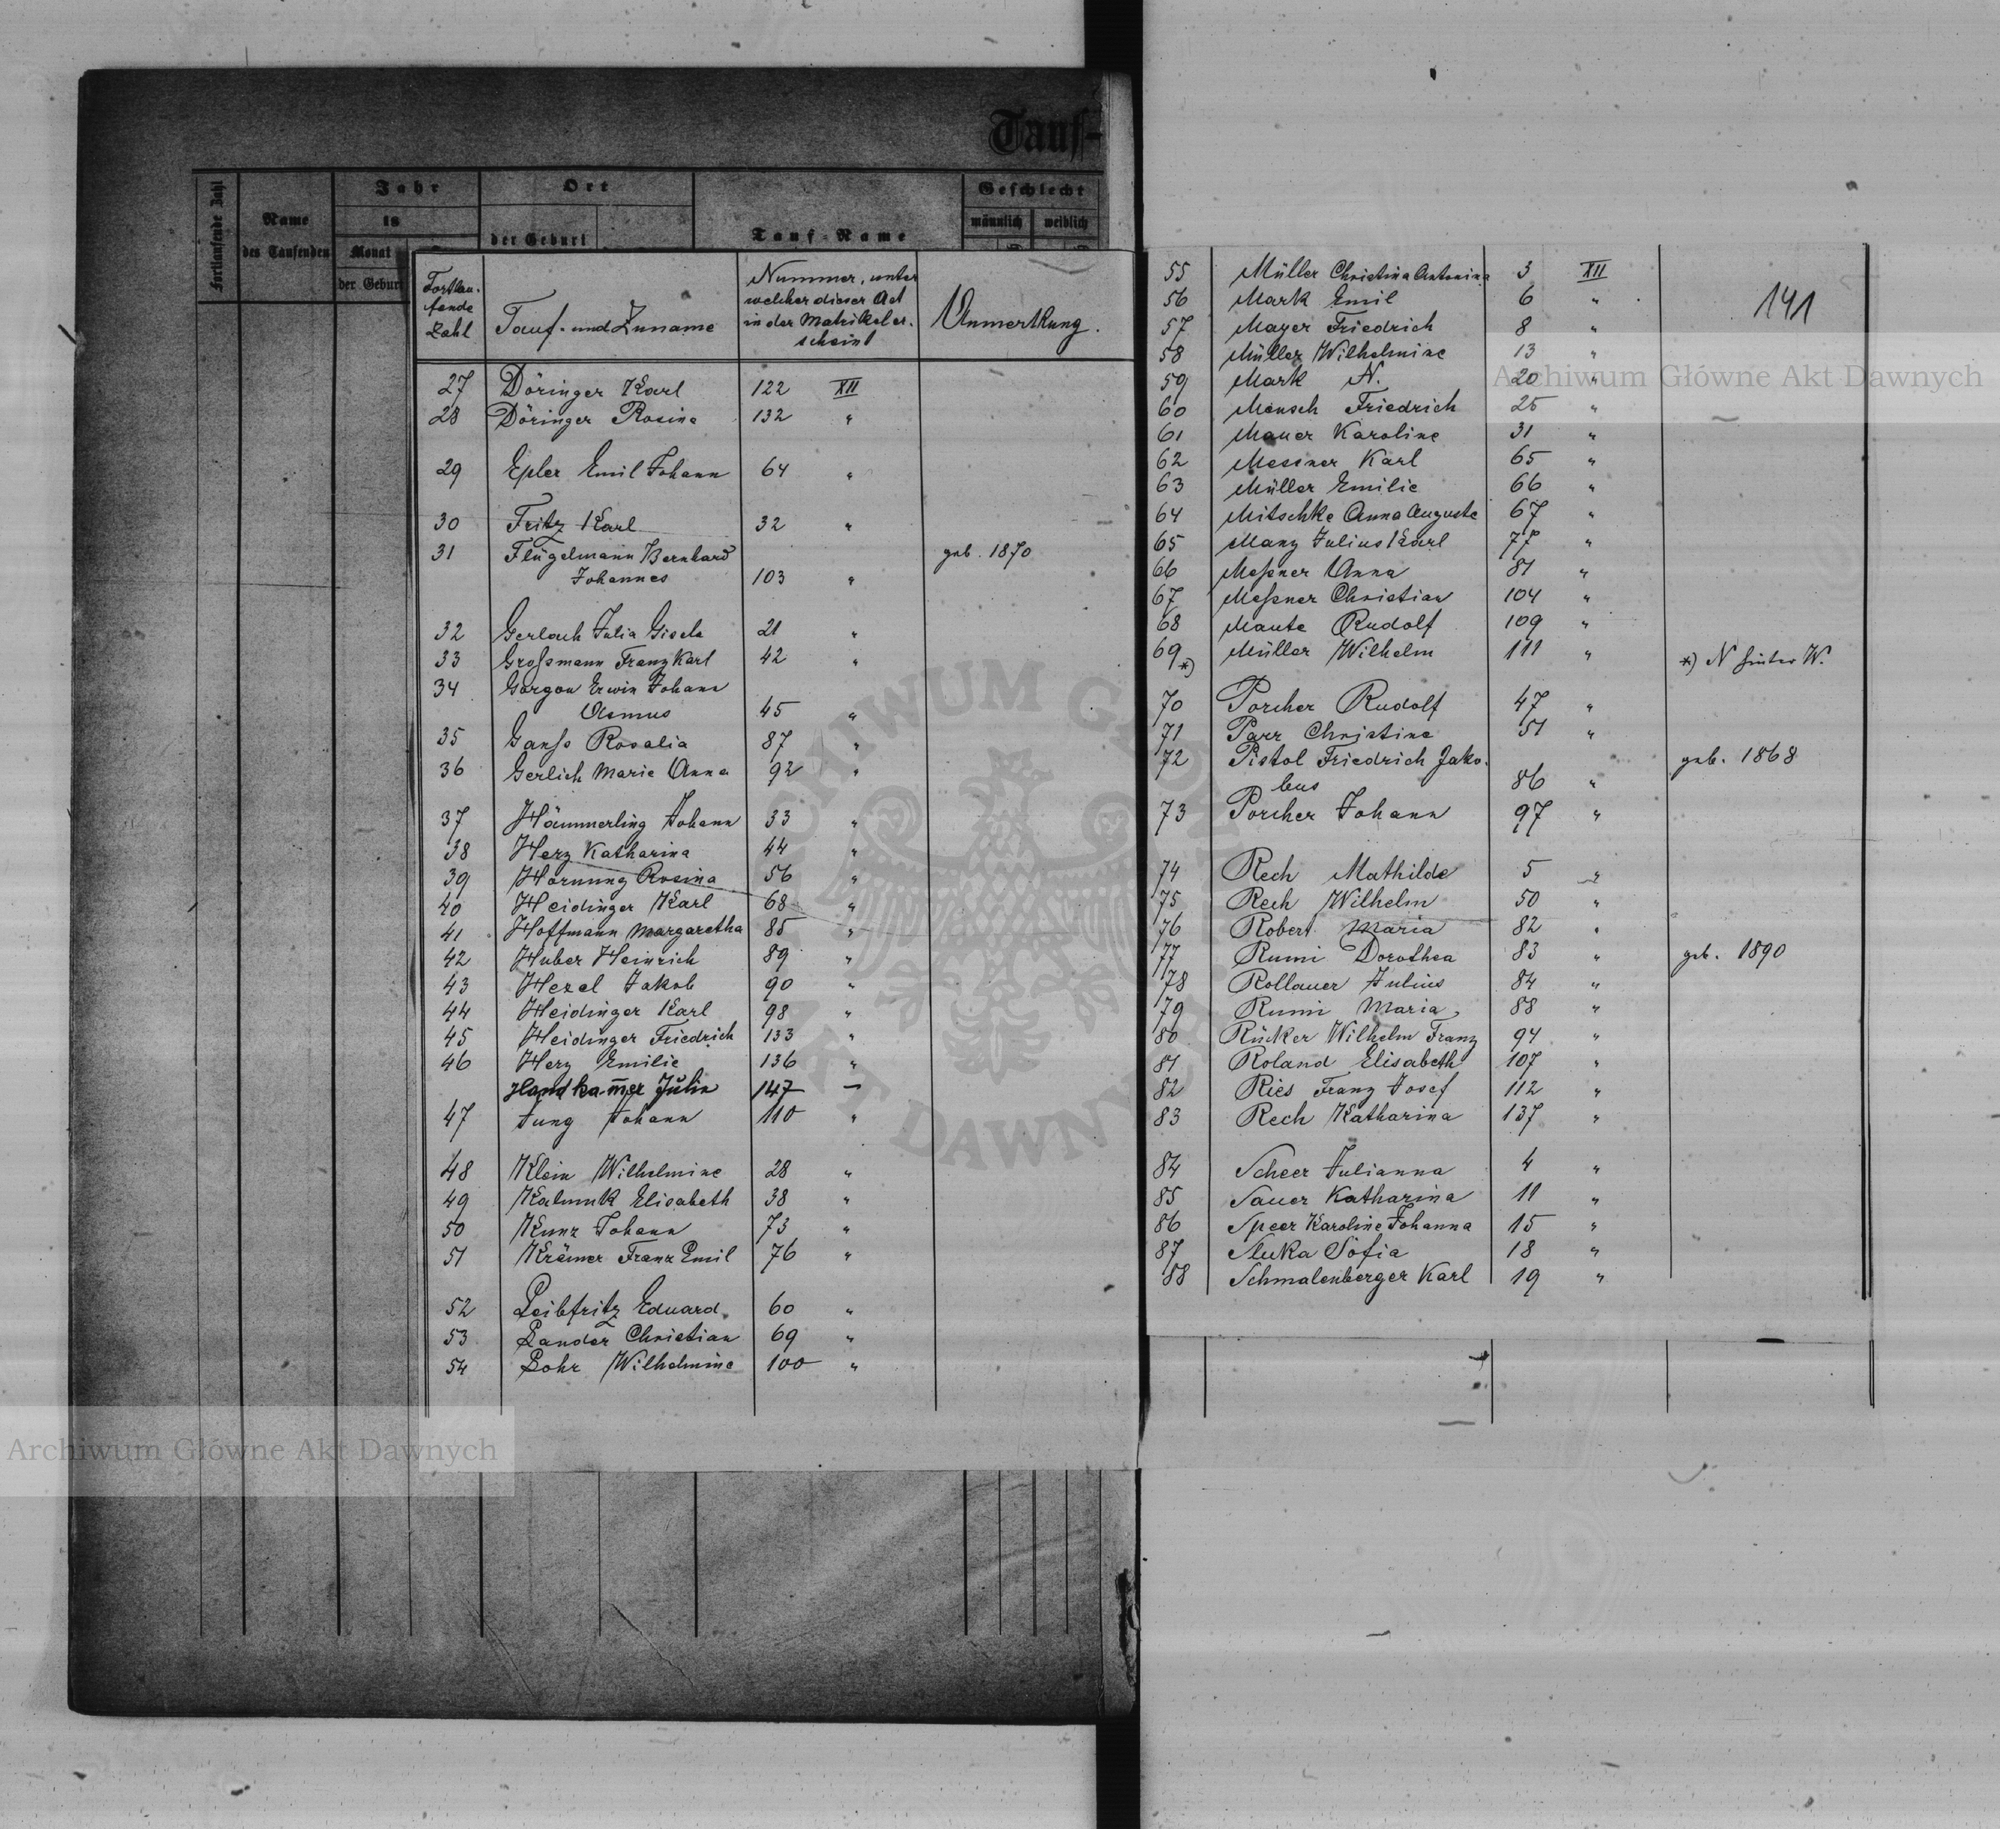 Tauf-
Fortlaufende Zahl
Name
des Taufenden
Jahr
18
Monat
der Geburt
Ort
der Geburt
Tauf-Name
Geschlecht
männlich
weiblich
Fortlau-
fende
Zahl
Tauf- und Zuname
Nummer, unter
welcher dieser Act
in der Matrikel er-
scheint
Anmerkung.
27 Döringer Karl 122 XII
28 Döringer Rosina 132 "
29 Epler Emil Johann 64 "
30 Fritz Karl 32 "
31 Flügelmann Bernhard geb. 1870
Johannes 103 "
32 Gerlach Julia Gisela 21 "
33 Großmann Franz Karl 42 "
34 Gorgon Erwin Johann
Asmus 45 "
35 Ganß Rosalia 87 "
36 Gerlich Marie Anna 92 "
37 Hämmerling Johann 33 "
38 Herz Katharina 44 "
39 Hornung Rosina 56 "
40 Heidinger Karl 68 "
41 Hoffmann Margaretha 85 "
42 Huber Heinrich 89 "
43 Hezel Jakob 90 "
44 Heidinger Karl 98 "
45 Heidinger Friedrich 133 "
46 Herz Emilie 136 "
Handkam̄er Julia 147 –
47 Jung Johann 110 "
48 Klein Wilhelmine 28 "
49 Kalmuk Elisabeth 38 "
50 Kunz Johann 73 "
51 Krämer Franz Emil 76 "
52 Leibfritz Eduard 60 "
53 Lander Christian 69 "
54 Lohr Wilhelmine 100 "
141
55 Müller Christina Antonina 3 XII
56 Mark Emil 6 "
57 Mayer Friedrich 8 "
58 Müller Wilhelmine 13 "
59 Mark N. 20 "
60 Mensch Friedrich 25 "
61 Mauer Karoline 31 "
62 Messner Karl 65 "
63 Müller Emilie 66 "
64 Mitschke Anna Auguste 67 "
65 Manz Julius Karl 77 "
66 Meßner Anna 81 "
67 Meßner Christian 104 "
68 Maute Rudolf 109 "
69 *) Müller Wilhelm 111 " *) N hinter W.
70 Porcher Rudolf 47 "
71 Parr Christine 51 "
72 Pistol Friedrich Jako- geb. 1868
bus 86 "
73 Porcher Johann 97 "
74 Rech Mathilde 5 "
75 Rech Wilhelm 50 "
76 Robert Maria 82 "
77 Rumi Dorothea 83 " geb. 1890
78 Rollauer Julius 84 "
79 Rumi Maria 88 "
80 Rücker Wilhelm Franz 94 "
81 Roland Elisabeth 107 "
82 Ries Franz Josef 112 "
83 Rech Katharina 137 "
84 Scheer Julianna 4 "
85 Sauer Katharina 11 "
86 Speer Karoline Johanna 15 "
87 Sluka Sofia 18 "
88 Schmalenberger Karl 19 "
Archiwum Główne Akt Dawnych
Archiwum Główne Akt Dawnych
ARCHIWUM GŁÓWNE
AKT DAWNYCH